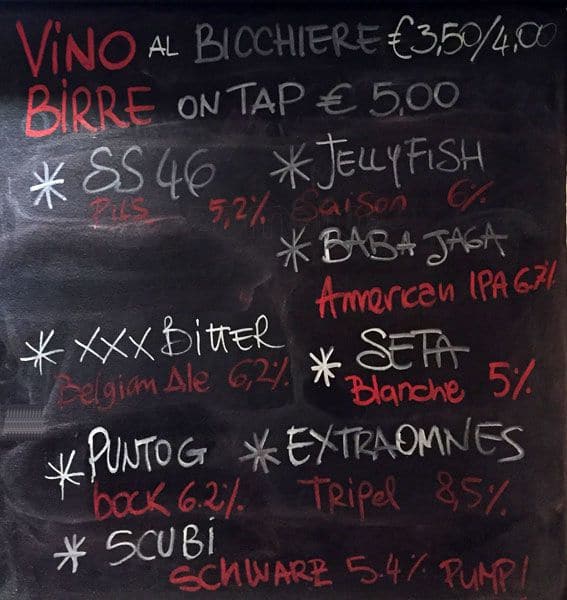 VINO AL BICCHIERE €3,50/4,00
BIRRE ON TAP € 5,00
* SS46
Pils 5,2%
* JELLYFISH
Saison 6%
* BABA JAGA
American IPA 6.7%
* XXX BITTER
Belgian Ale 6,2%
* SETA
Blanche 5%
* PUNTO G
bock 6.2%
* EXTRAOMNES
Tripel 8,5%
* SCUBI
SCHWARZ 5.4% PUMP!